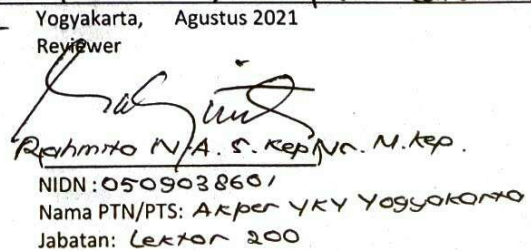 Yogyakarta, Agustus 2021
Reviewer
Rahmita N.A. S.Kep Ns. M.Kep.
NIDN : 0509038601
Nama PTN/PTS: Akper YKY Yogyakarta
Jabatan: Lektor 200